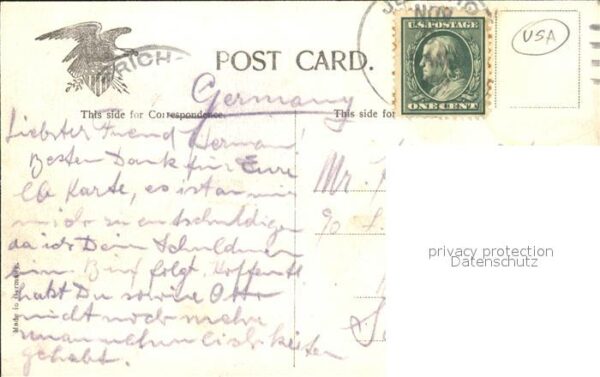 NOV
U.S. POSTAGE
USA
RICH.
POST CARD.
ONE CENT
Germany
This side for Correspondence.
This side for
Liebster Freund Herman!
Besten Dank für Eure
Karte, es ist an mir
mich zu entschuldigen
da ich Dein Schuldner
bin. Brief folgt. Hoffentl
habt Du sowie Otto
nicht noch mehr
unannehmlichkeiten
gehabt.
Mr.
90
privacy protection
Datenschutz
Made in Germany.